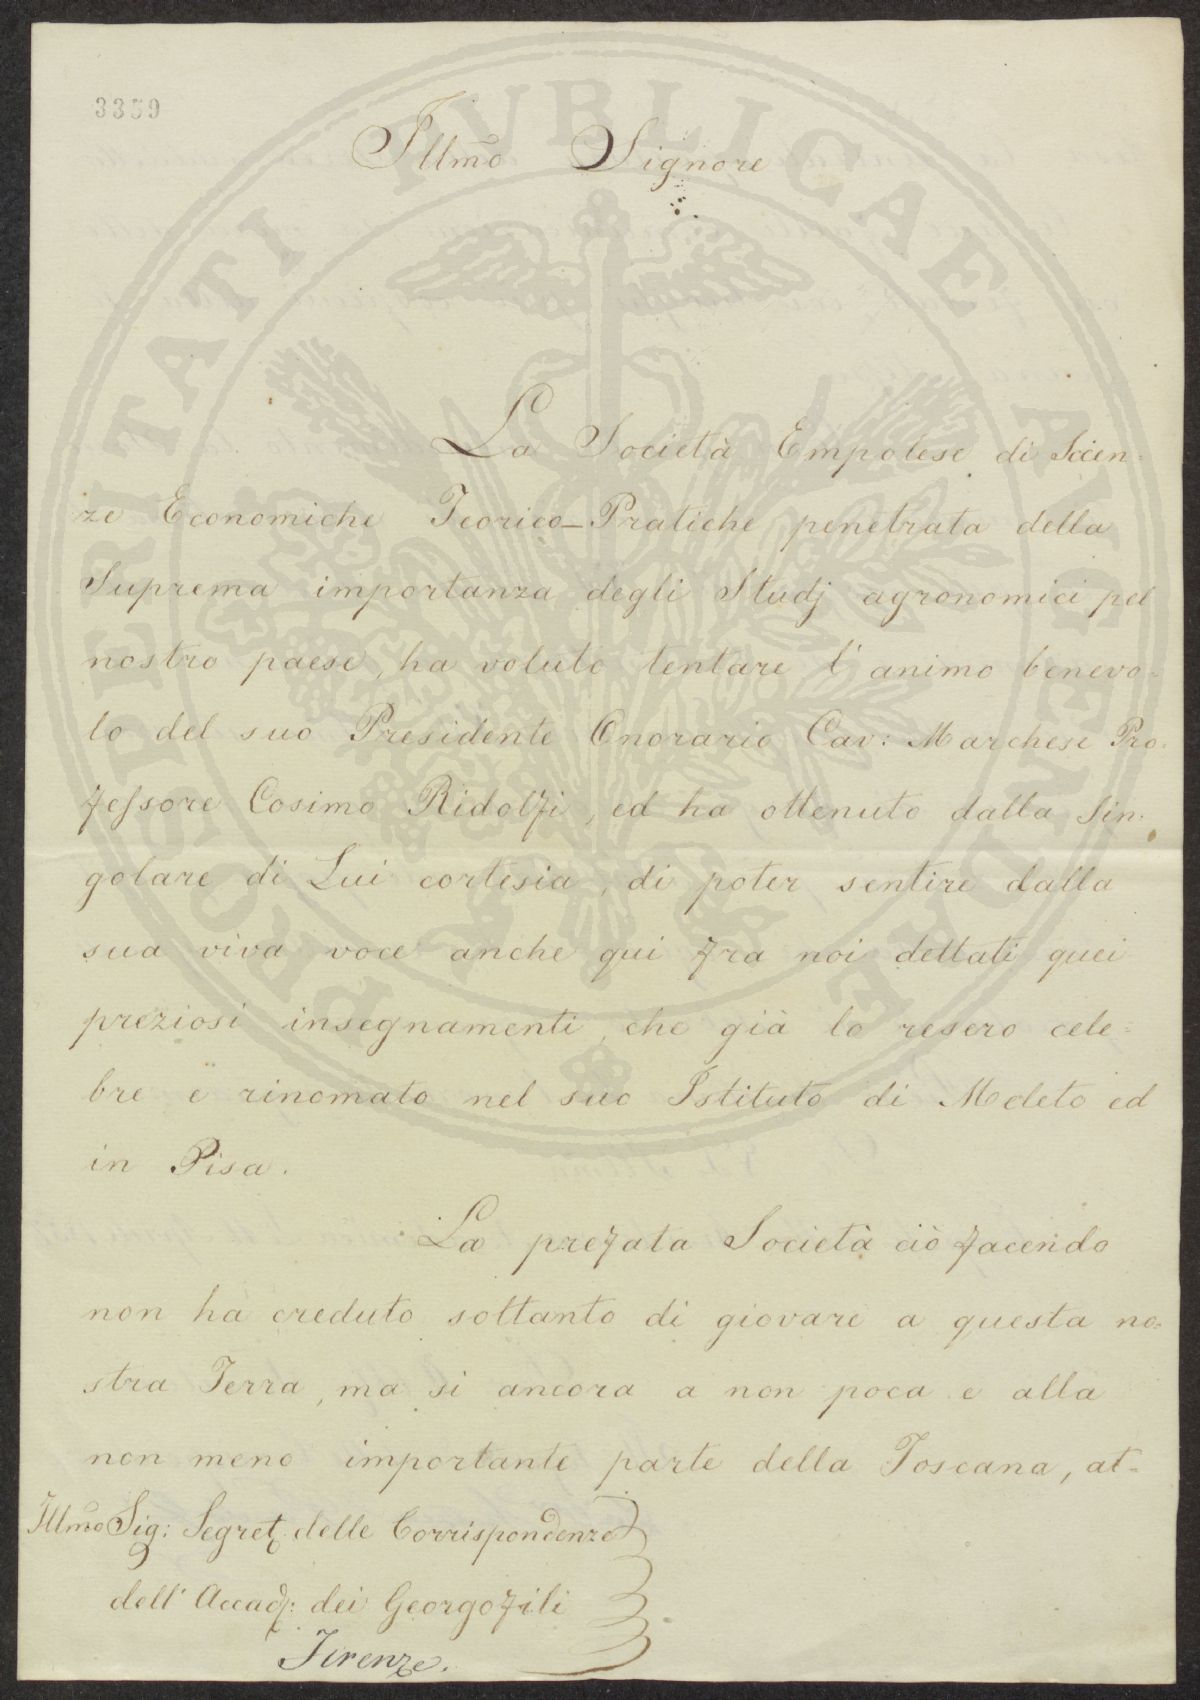 3359
Illmo Signore
La Società Empolese di Scien-
ze Economiche Teorico-Pratiche penetrata della
Suprema importanza degli Studj agronomici pel
nostro paese, ha voluto tentare l'animo benevo-
lo del suo Presidente Onorario Cav: Marchese Pro-
fessore Cosimo Ridolfi, ed ha ottenuto dalla sin-
golare di Lui cortesia, di poter sentire dalla
sua viva voce anche qui fra noi dettati quei
preziosi insegnamenti, che già lo resero cele-
bre e rinomato nel suo Istituto di Meleto ed
in Pisa.
La prefata Società ciò facendo
non ha creduto soltanto di giovare a questa no-
stra Terra, ma sì ancora a non poca e alla
non meno importante parte della Toscana, at-
Illmo Sig: Segret. delle Corrispondenze
dell'Accad: dei Georgofili
Firenze.
PROSPERITATI PVBLICAE AVGENDAE